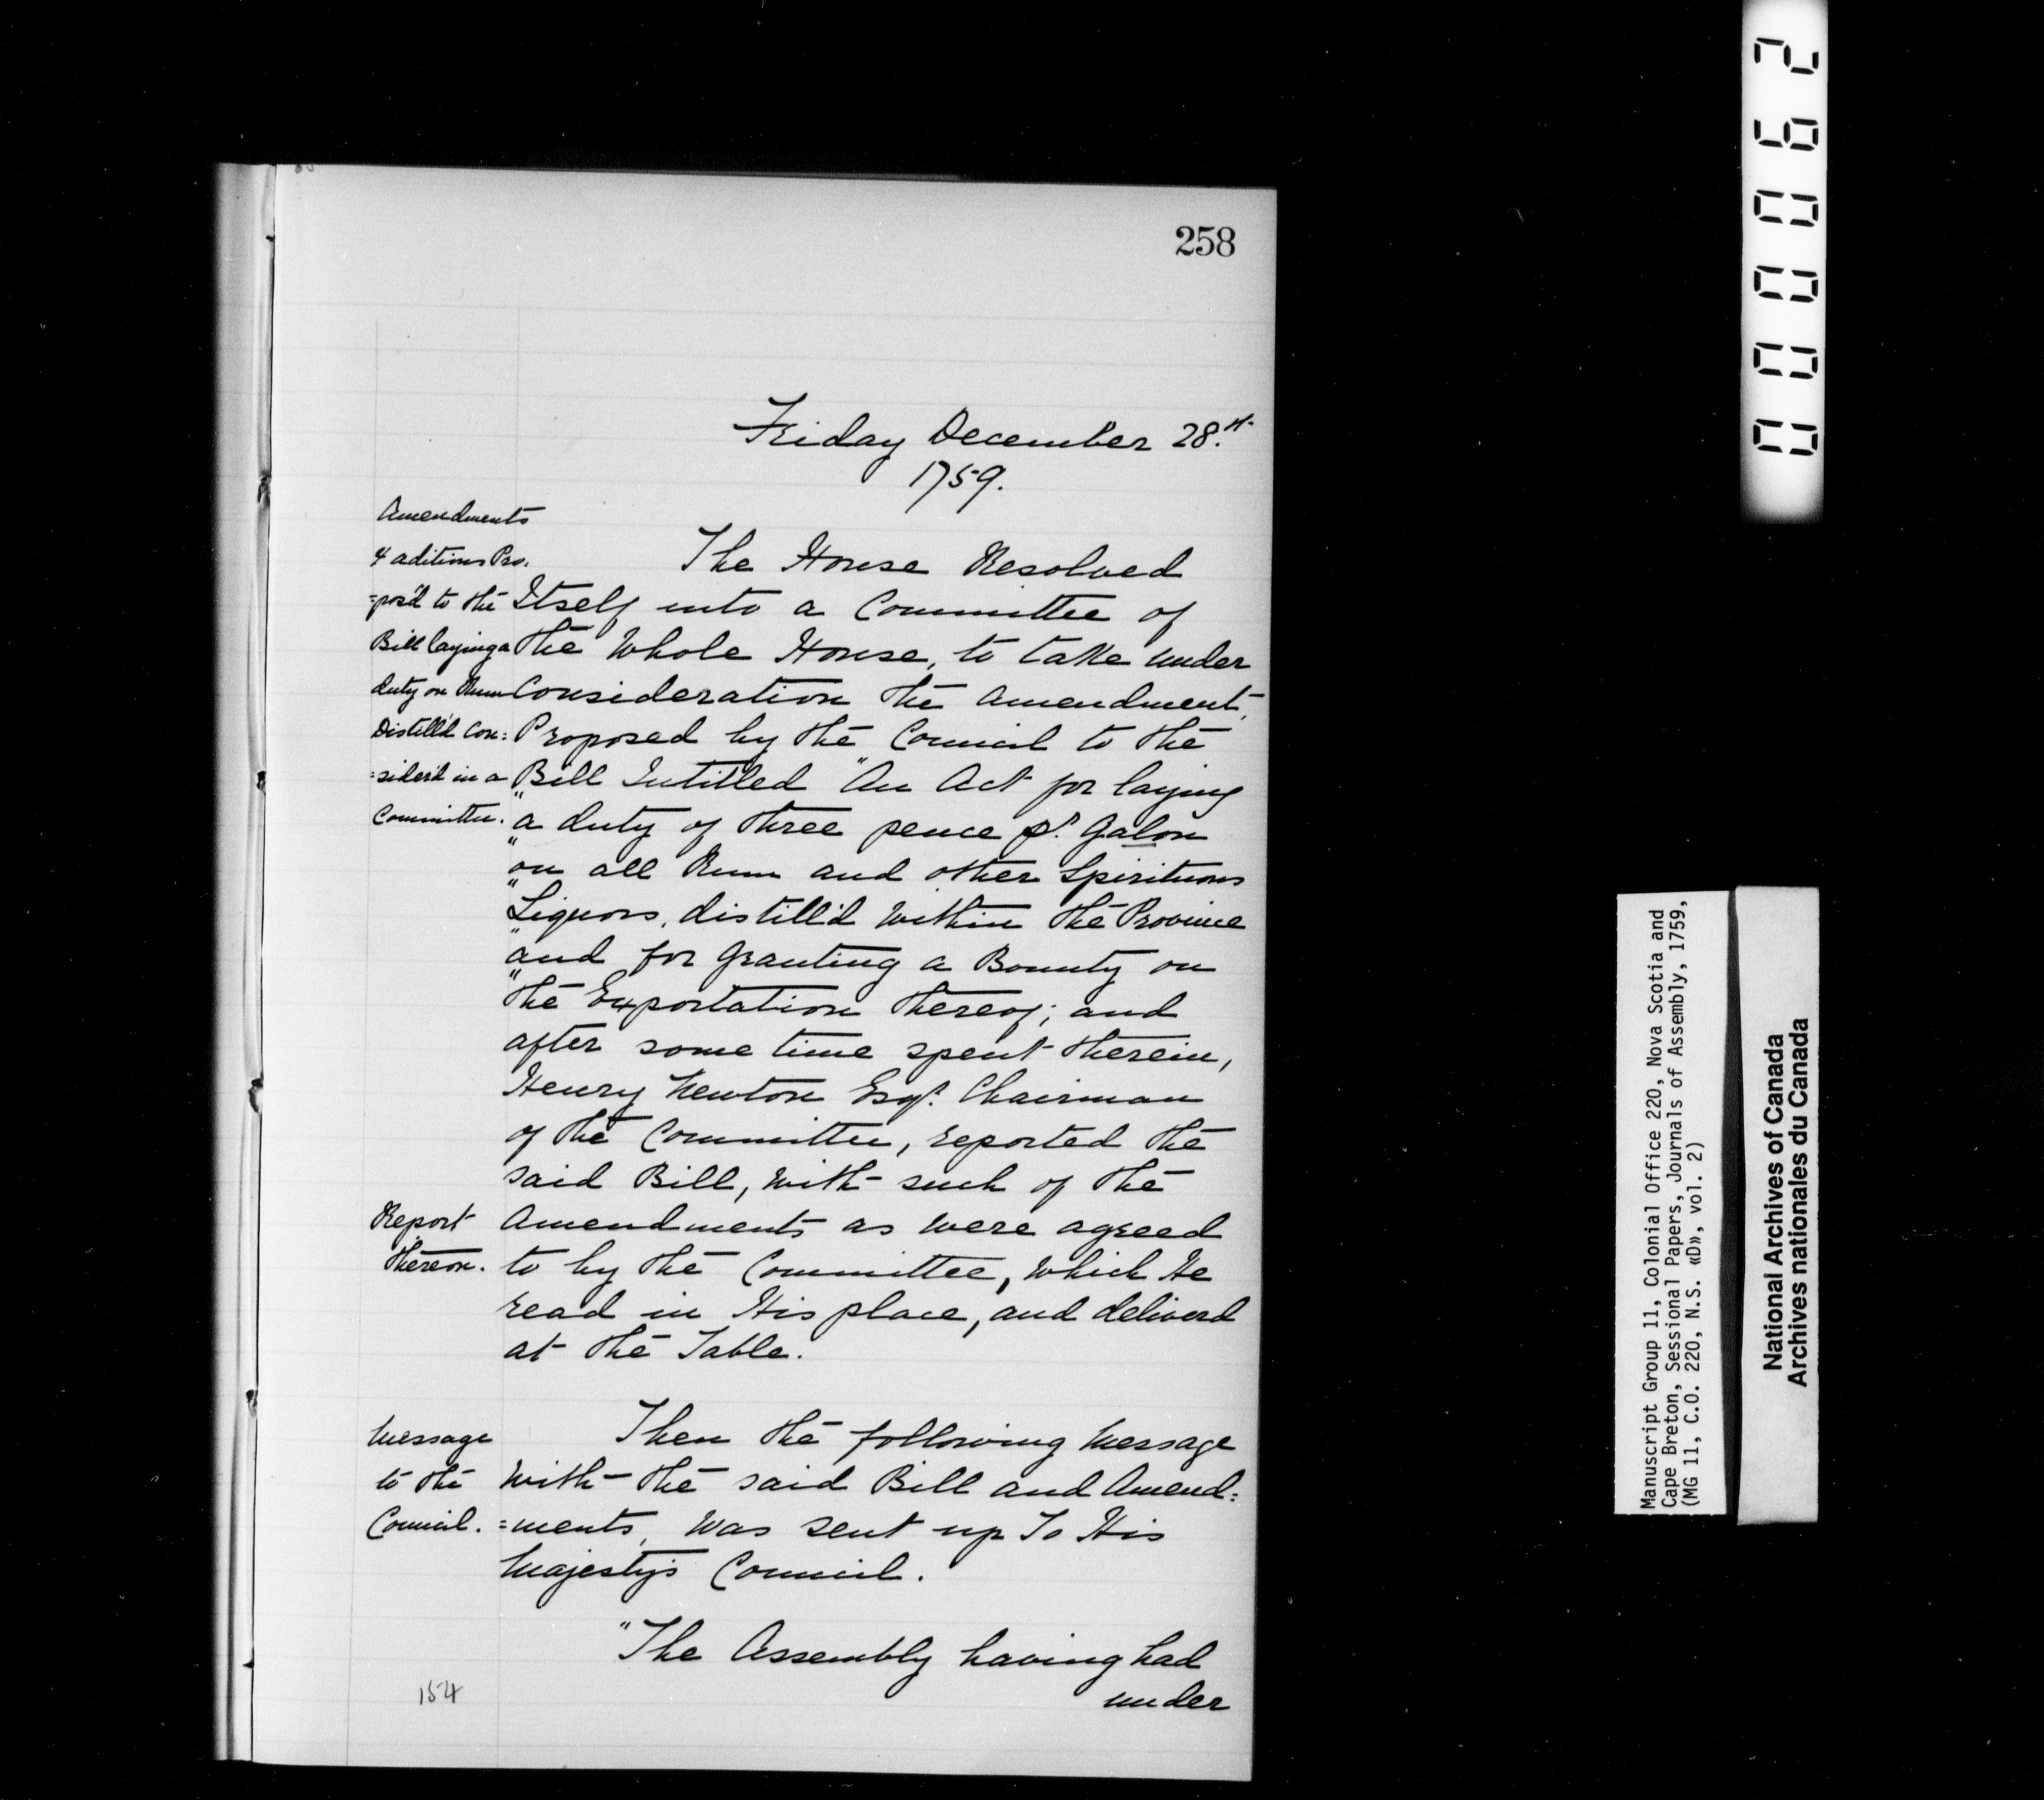 258
Friday December 28.th
1759.
Amendments
& aditions Pro=
=pos'd to the
Bill laying a
duty on Rum
Distill'd Con=
=sider'd in a
Committee.
The House Resolved
Itself into a Committee of
the Whole House, to take under
Consideration the amendment,
Proposed by the Council to the
Bill Intitled "An Act for laying
"a duty of three pence pr. Galon
"on all Rum and other Spirituous
"Liquors, distill'd within the Province
"and for Granting a Bounty on
"the Exportation thereof; and
after some time spent therein,
Henry Newton Esqr. Chairman
of the Committee, reported the
said Bill, with such of the
Amendments as were agreed
to by the Committee, which He
read in His place, and deliverd
at the Table.
Report
thereon.
Then the following Message
with the said Bill and Amend=
=ments, was sent up To His
Majesty's Council.
Message
to the
Council.
"The Assembly having had
under
154
000062
Manuscript Group 11, Colonial Office 220, Nova Scotia and
Cape Breton, Sessional Papers, Journals of Assembly, 1759,
(MG 11, C.O. 220, N.S. «D», vol. 2)
National Archives of Canada
Archives nationales du Canada